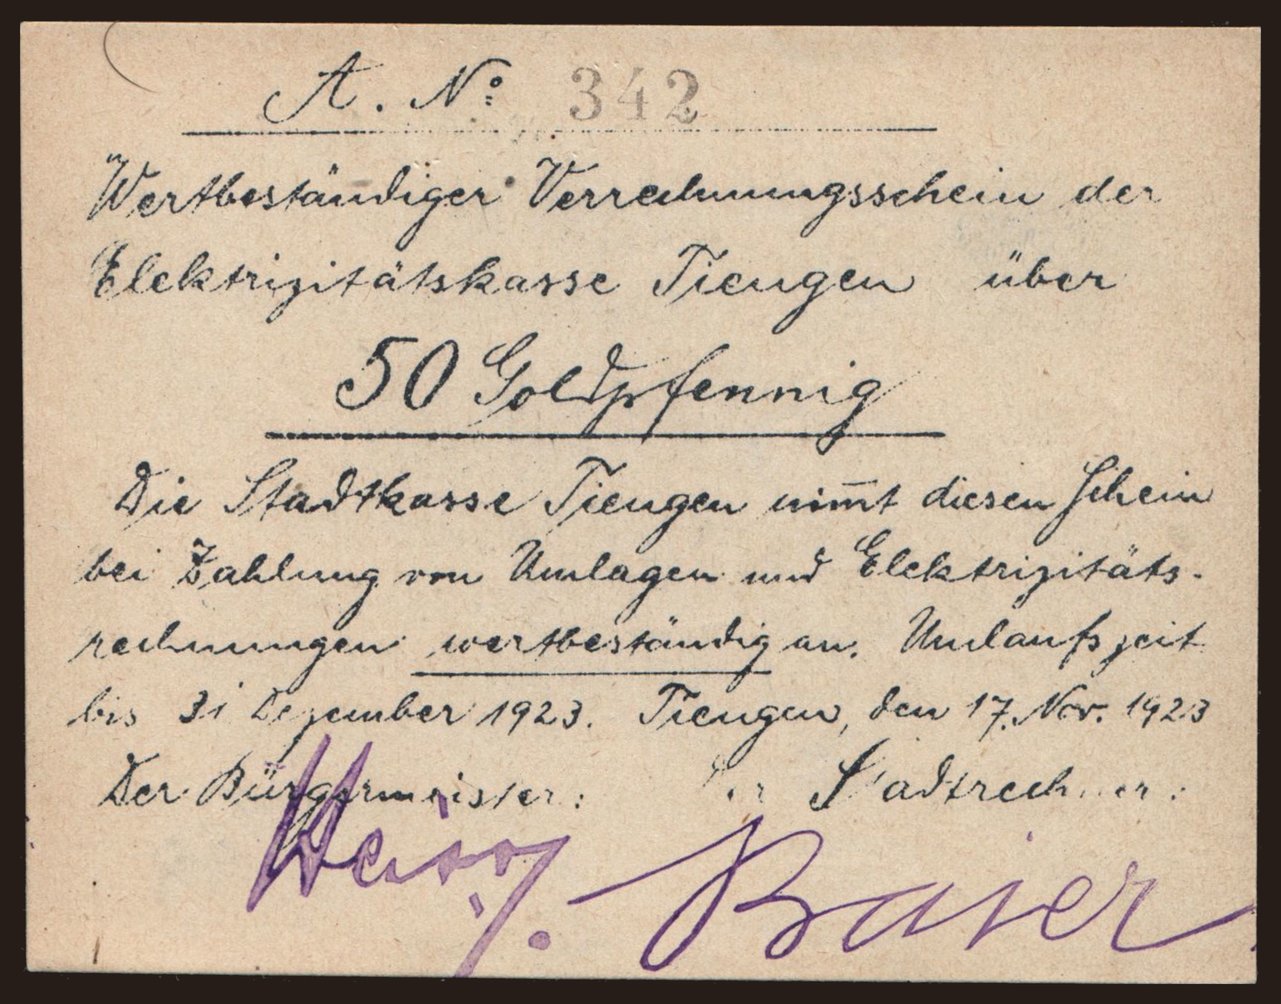 A. No 342
Wertbeständiger Verrechnungsschein der
Elektrizitätskasse Tiengen über
50 Goldpfennig
Die Stadtkasse Tiengen nim̅t diesen Schein
bei Zahlung von Umlagen und Elektrizitäts-
rechnungen wertbeständig an. Umlaufszeit
bis 31 Dezember 1923. Tiengen, den 17. Nov. 1923
Der Bürgermeister: Stadtrechner:
Baier